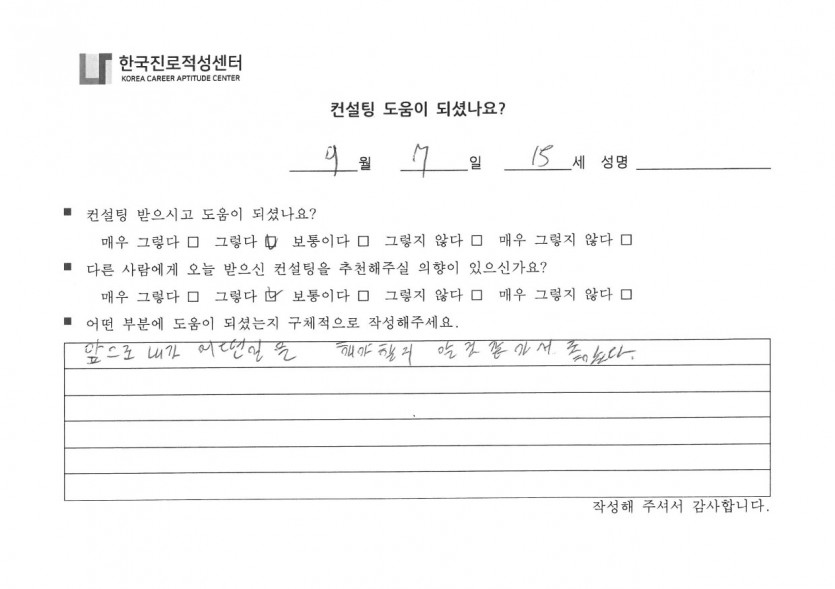 한국진로적성센터
KOREA CAREER APTITUDE CENTER
컨설팅 도움이 되셨나요?
9 월 7 일 15 세 성명
■ 컨설팅 받으시고 도움이 되셨나요?
매우 그렇다 □ 그렇다 ☑ 보통이다 □ 그렇지 않다 □ 매우 그렇지 않다 □
■ 다른 사람에게 오늘 받으신 컨설팅을 추천해주실 의향이 있으신가요?
매우 그렇다 □ 그렇다 ☑ 보통이다 □ 그렇지 않다 □ 매우 그렇지 않다 □
■ 어떤 부분에 도움이 되셨는지 구체적으로 작성해주세요.
앞으로 내가 어떤일을 해야할지 알 것 같아서 좋았다.
작성해 주셔서 감사합니다.